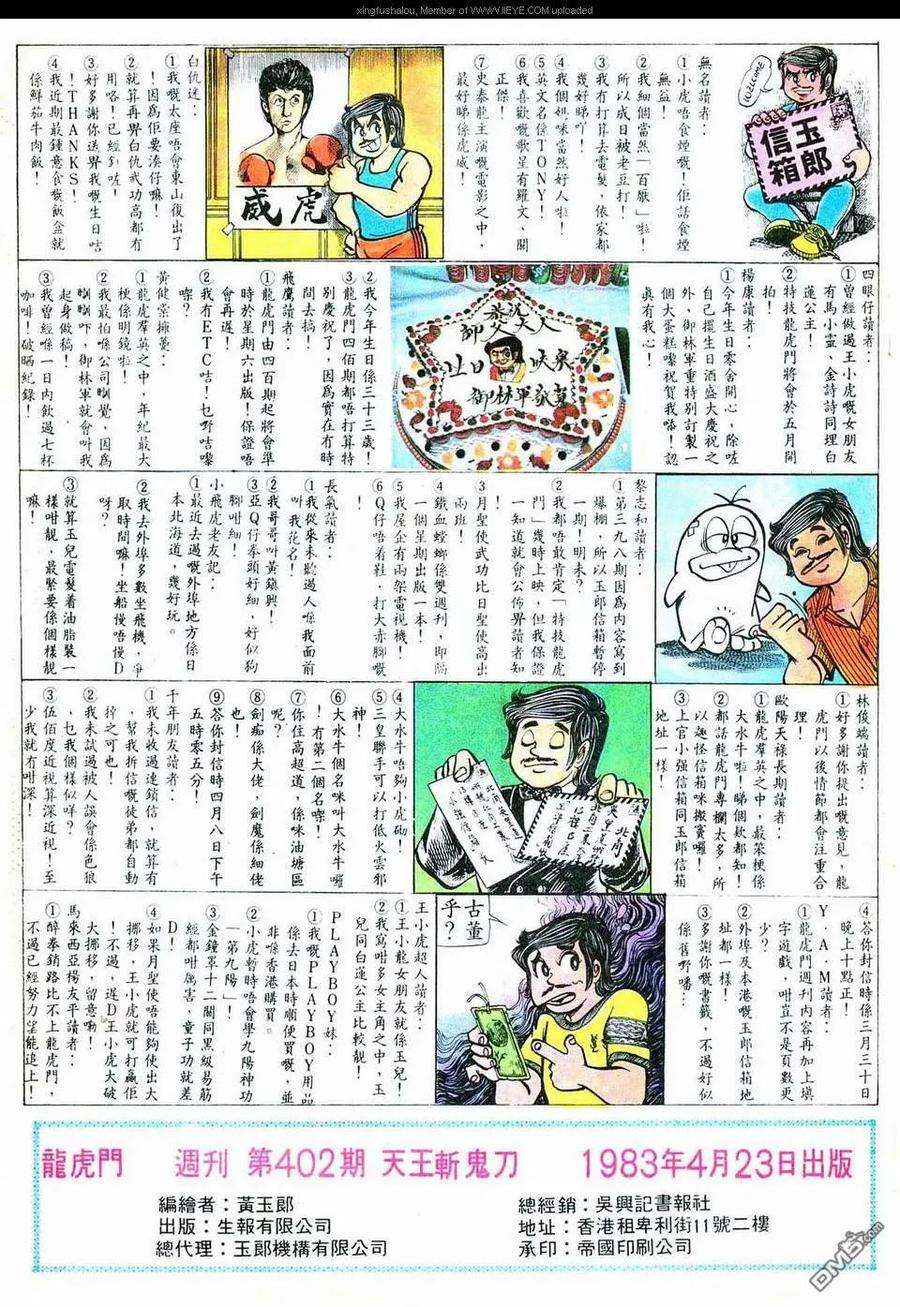 xingfushalou, Member of WWW.IIEYE.COM uploaded
WELCOME
玉郎
信箱
無名讀者：
①小虎唔食煙嘅！佢話食煙
無益！
②我細個當然「百厭」啦！
所以成日被老豆打！
③我冇打算去電髮，依家都
幾好睇吖！
④我個姐咪當然好人啦！
⑤英文名係TONY！
⑥我喜歡嘅歌星有羅文、關
正傑！
⑦史泰龍主演嘅電影之中，
最好睇係虎威！
虎威
白仇迷：
①我嘅太座唔會東山復出了
！因爲佢要湊仔嘛！
②就算再畀白仇武功高都有
用咯！已經釘咗！
③好多謝你送畀我嘅生日咭
！THANKS！
④我近期最鍾意食嘅飯盒就
係鮮茄牛肉飯！
四眼仔讀者：
①曾經做過王小虎嘅女朋友
有馬小靈、金詩詩同埋白
蓮公主！
②特技龍虎門將會於五月開
拍！
楊康讀者：
①今年生日零舍開心，除咗
自己擺生日酒盛大慶祝之
外，御林軍重特別訂製一
個大蛋糕嚟祝賀我嗱！認
眞有我心！
恭祝
師父大人
吐日快樂
御林軍敬賀
②我今年生日係三十三歲！
③龍虎門四佰期都唔打算特
別慶祝了，因爲實在冇時
間去搞！
飛鷹讀者：
①龍虎門由四百期起將會準
時於星期六出版！保證唔
會再遲！
②我冇ETC咭！乜野咭嚟
㗎？
黃健棠擁躉：
①龍虎羣英之中，年紀最大
梗係明鏡啦！
②我最怕喺公司瞓覺，因爲
瞓瞓吓，御林軍就會叫我
起身做稿！
③我曾經喺一日內飲過七杯
咖啡！破晒紀錄！
黎志和讀者：
①第三九八期因爲內容寫到
爆棚，所以玉郎信箱暫停
一期！明未？
②我都唔敢肯定「特技龍虎
門」幾時上映，但我保證
一知道就會公佈畀讀者知
③月聖使武功比日聖使高出
兩班！
④鐵血螳螂係雙週刊，即隔
一個星期出版一本！
⑤我屋企有兩架電視機！
⑥Q仔唔着鞋，打大赤腳嘅
長氣讀者：
①我從來未聽過人喺我面前
叫我花名！
②我哥哥叫黃鎮興！
③亞Q仔拳頭好細，好似狗
脚咁細！
小飛虎老友記：
①最近去過嘅外埠地方係日
本北海道，幾好玩。
②我去外埠多數坐飛機，爭
取時間嘛！坐船慢唔慢D
呀？
③就算玉兒電髮着油脂裝一
樣咁靚，最緊要係個樣靚
嘛！
林俊端讀者：
①好多謝你提出嘅意見，龍
虎門以後情節都會注重合
理！
歐陽天祿長期讀者：
①龍虎羣英之中，最笨梗係
大水牛啦！睇個款都知！
②都話龍虎門專欄太多，所
以趣怪信箱咪搬竇囉！
③上官小强信箱同玉郎信箱
地址一樣！
④大水牛唔夠小虎砌！
⑤三皇聯手可以打低火雲邪
神！
⑥大水牛個名咪叫大水牛囉
！冇第二個名㗎！
⑦你住高超道，係咪油塘區
呢？
⑧劍痴係大佬，劍魔係細佬
也！
⑨答你封信時四月八日下午
五時零五分！
千年朋友讀者：
①我未收過連鎖信，就算有
，幫我折信嘅徒弟都自動
掉之可也！
②我未試過被人誤會係色狼
，乜我個樣似咩？
③伍佰度近視算深近視！至
少我就冇咁深！
④答你封信時係三月三十日
晚上十點正！
Y．A．M讀者：
①龍虎門週刊內容再加上塡
字遊戲，咁豈不是頁數更
少？
②外埠及本港嘅玉郎信箱地
址都一樣！
③多謝你嘅書籤，不過好似
係舊野噃…
古董乎？
王小虎超人讀者：
①王小龍女朋友就係玉兒！
②我寫咁多女主角之中，玉
兒同白蓮公主比較靚！
PLAYBOY妹：
①我嘅PLAYBOY用品
係去日本時順便買嘅，並
非喺香港購買。
②小虎暫時唔會學九陽神功
「第九陽」！
③金鐘罩十二關同黑級易筋
經都咁厲害，童子功就差
D！
④如果月聖使唔能夠使出大
挪移，王小虎就可打贏佢
！不過，遲D王小虎大破
大挪移，留意嘞！
馬來西亞楊友平讀者：
①醉拳銷路比不上龍虎門，
不過已經努力望能追上！
龍虎門 週刊 第402期 天王斬鬼刀 1983年4月23日出版
編繪者：黃玉郎
出版：生報有限公司
總代理：玉郎機構有限公司
總經銷：吳興記書報社
地址：香港租卑利街11號二樓
承印：帝國印刷公司
DM5.com